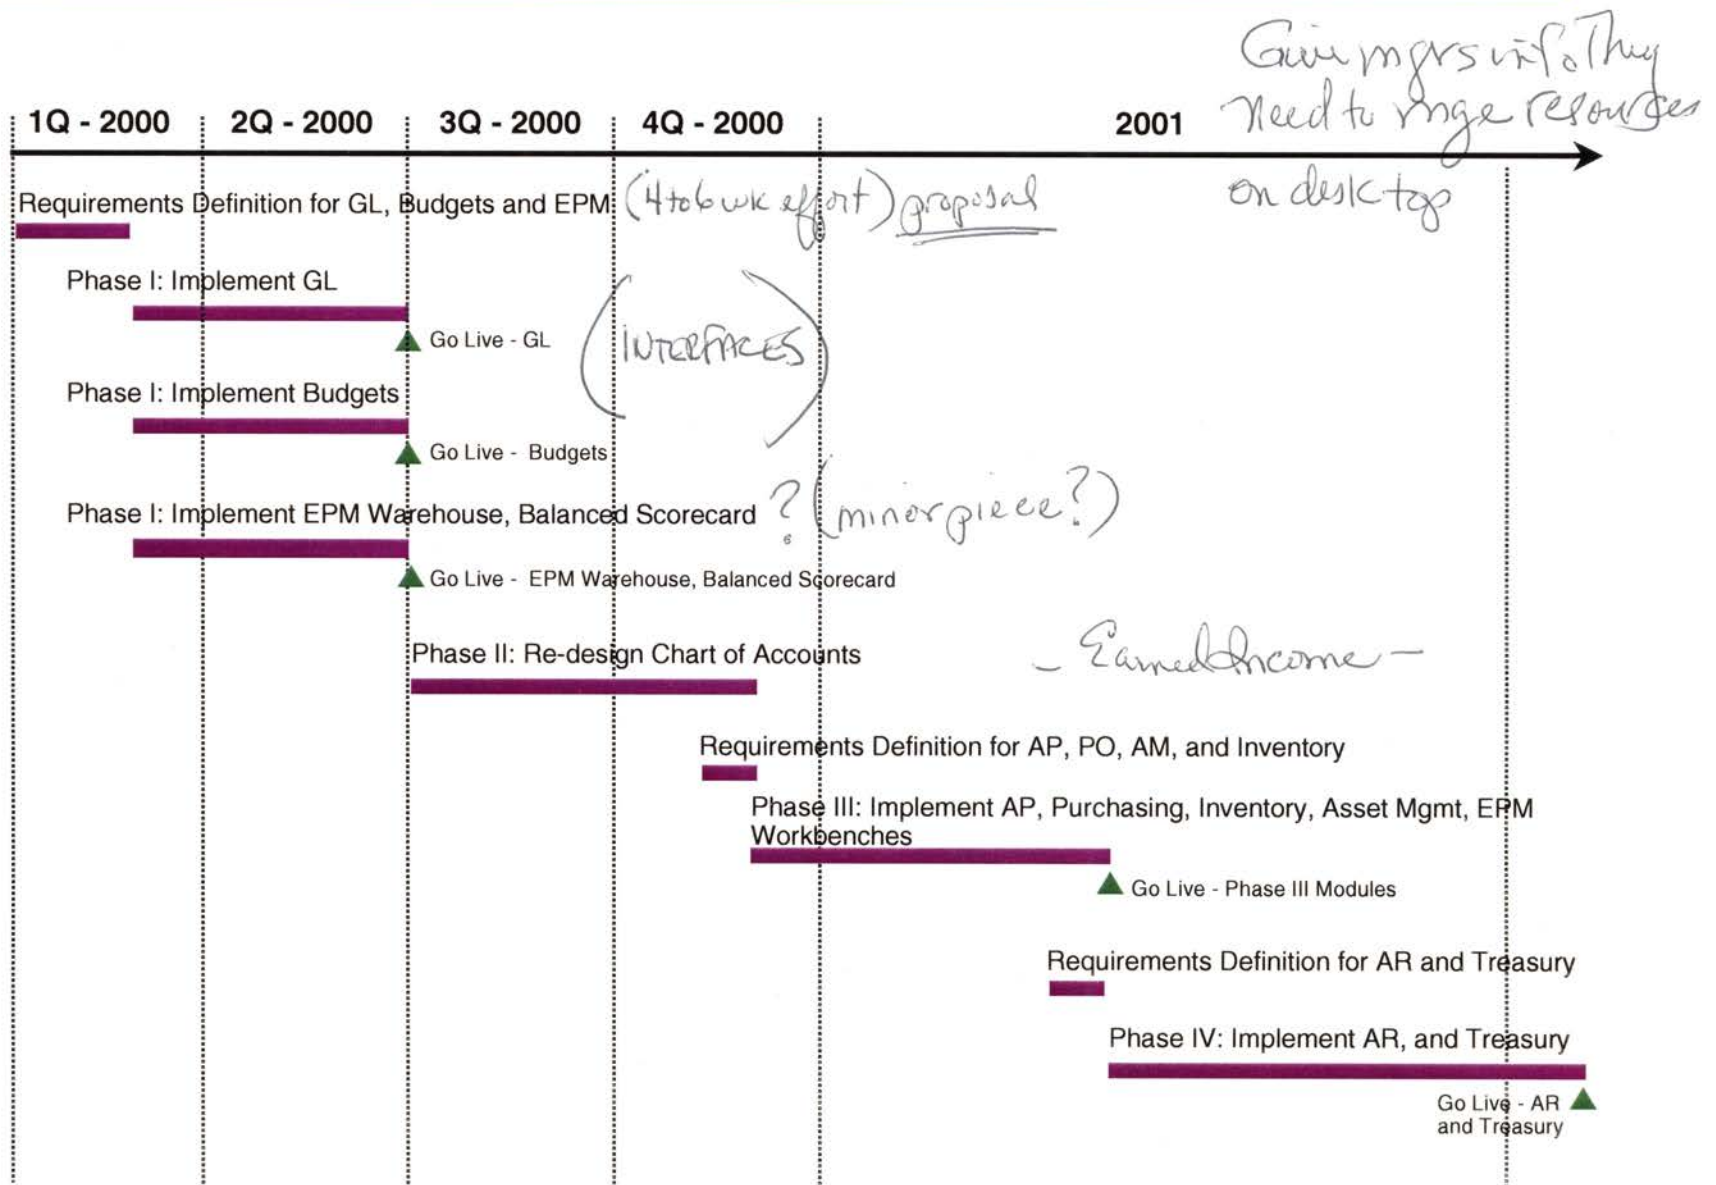 Give mgrs info They
Need to mge resources
1Q - 2000 2Q - 2000 3Q - 2000 4Q - 2000 2001
on desk top
Requirements Definition for GL, Budgets and EPM (4 to 6 wk effort) proposal
Phase I: Implement GL
Go Live - GL
(INTERFACES)
Phase I: Implement Budgets
Go Live - Budgets
Phase I: Implement EPM Warehouse, Balanced Scorecard ? (minor piece?)
Go Live - EPM Warehouse, Balanced Scorecard
Phase II: Re-design Chart of Accounts
- Earned Income -
Requirements Definition for AP, PO, AM, and Inventory
Phase III: Implement AP, Purchasing, Inventory, Asset Mgmt, EPM
Workbenches
Go Live - Phase III Modules
Requirements Definition for AR and Treasury
Phase IV: Implement AR, and Treasury
Go Live - AR
and Treasury